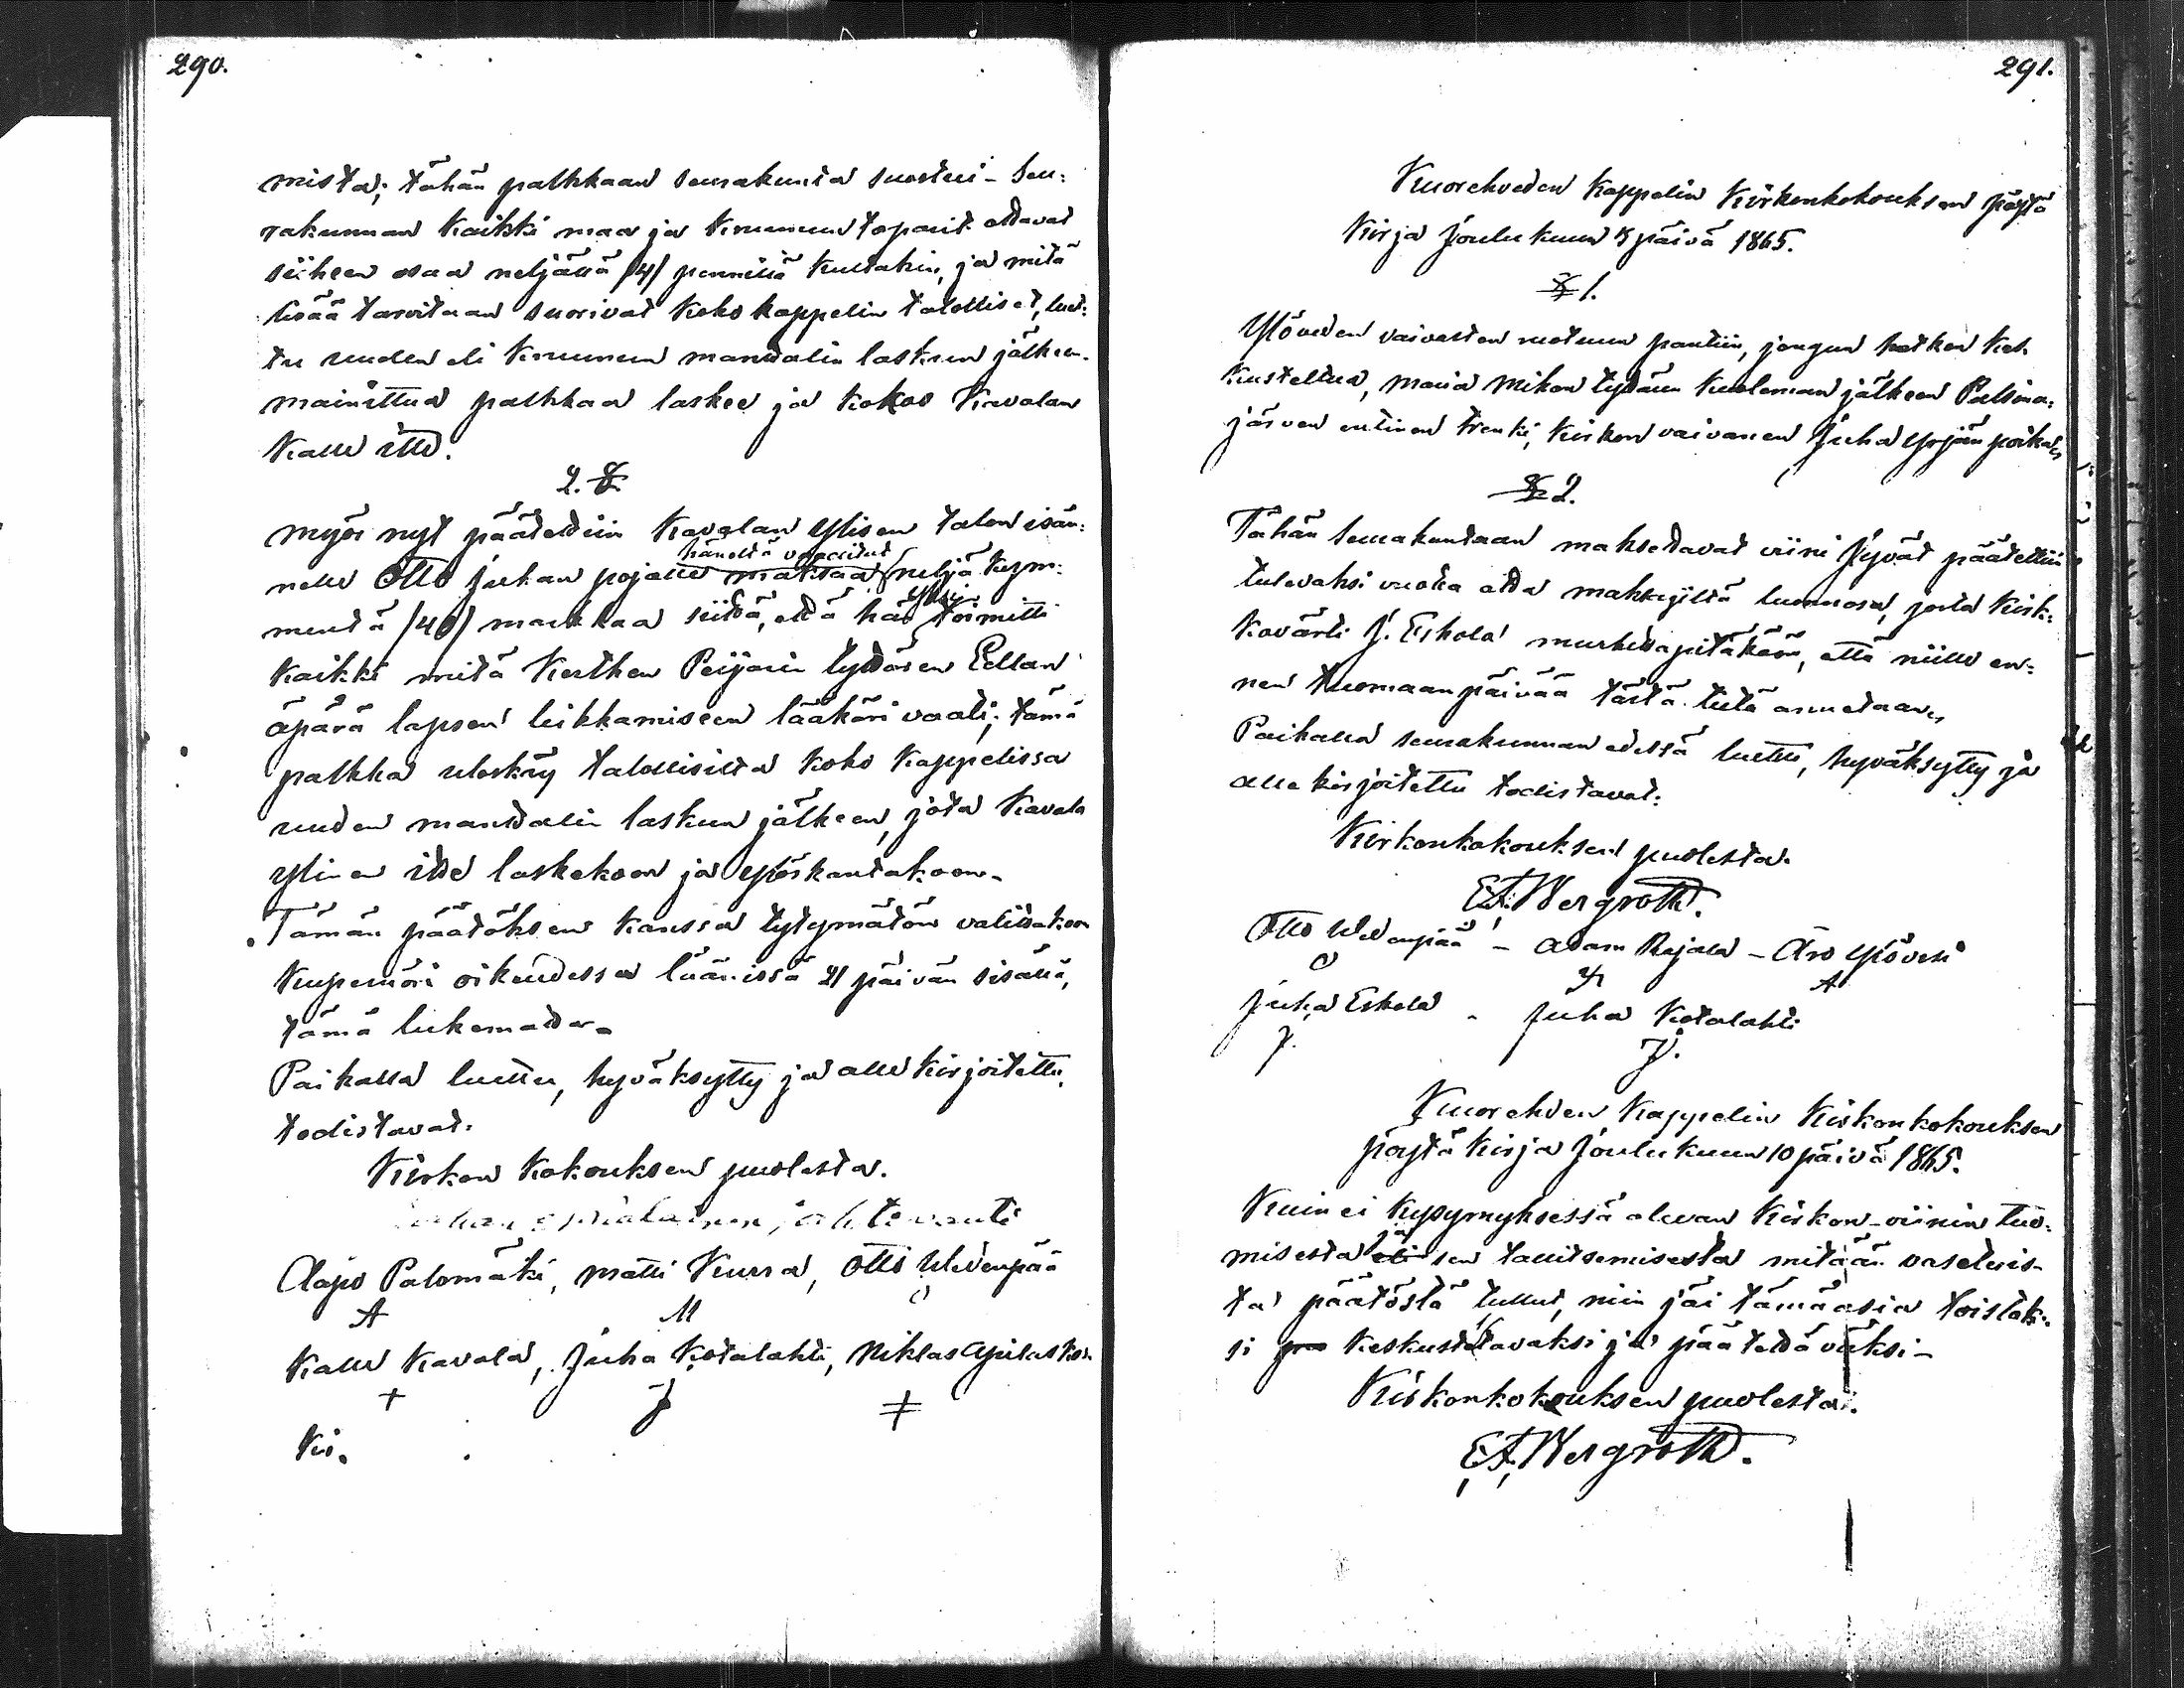 290.
mista; tähän palkkaan seurakunta suostui - Seu:
rakunnan kaikki maa ja kruunun toparit ottavat
siihen osaa neljällä /4/ pennillä kultakin, ja mitä
lisää tarvitaan suorivat koko kappelin talolliset, luet:
tu uuden eli kruunun manttalin laskun jälkeen.
mainittua palkkaa laskee ja kokoo Kavalan
Kalle itte.
2. §.
Myös nyt päätettiin Kavalan Ylisen talon isän:
häneltä vaaditut
nelle Otto Juhan pojalle maksaa neljä kym:
mentä /40/ markkaa siitä, että hän toimitti
kaikki mitä Kerthen Peijarin tyttären Eellan
äpärä lapsen leikkamiseen lääkäri vaati; tämä
palkka uloskäy talollisilta koko kappelissa
uuden manttalin laskun jälkeen, jota Kavala
ylinen itte laskekoon ja ylöskantakoon.
Tämän päätöksen kanssa tytymätön valittakoon
Kupernöri oikeudessa läänissä 21 päivän sisällä,
tämä lukematta.
Paikalla luettu, hyväksytty ja alle kirjoitettu,
todistavat.
Kirkon kokouksen puolesta.
jahtivouti
Aapo Palomäki, Matti Kurra, Otto Uldenpää
A M O
Kalle Kavala, Juha Kotalahti, Niklas
+ J ǂ
Kir.
291.
Kuorehveden Kappelin Kirkonkokouksen pöytä
Kirja Joulukuun päivä 1865.
§ 1.
Ylöveden vaivasten ruotuun pantiin, jongun hetken kes
kusteltua, Maria Mikon tyttären kuoleman jälkeen Pälsina:
järven entinen trenki, kirkon vaivanen Juha Yrjän poika
§ 2.
Tähän seurakuntaan maksettavat viini jyvät päätettiin
tulevaksi vuotta otta makkyiltä luonnosa, josta kirk:
kovärti J. Eskola murhetapitäköön, että niille en:
nen tuomaanpäivää tästä tietä annetaan
Paikalla seurakunnan edessä luettu, hyväksytty ja
alle kirjoitettu todistavat:
Kirkonkokouksen puolesta.
E. A. Bergroth.
Otto Uldenpää - Adam Rajala - Aro Ylövesi
O A
Juha Eskola - Juha Kotalahti
J. J.
Kuorehven Kappelin Kirkonkokouksen
pöytä kirja Joulukuun 10 päivä 1865.
Kuin ei kysymyksessä olevan kirkon-viinin tuo:
misesta ja sen tallitsemisesta mitään vastuis-
ta päätöstä tullut, niin jäi tämä asia toistak:
si keskusteltavaksi ja päätettäväksi -
Kirkonkokouksen puolesta.
E. A. Bergroth.